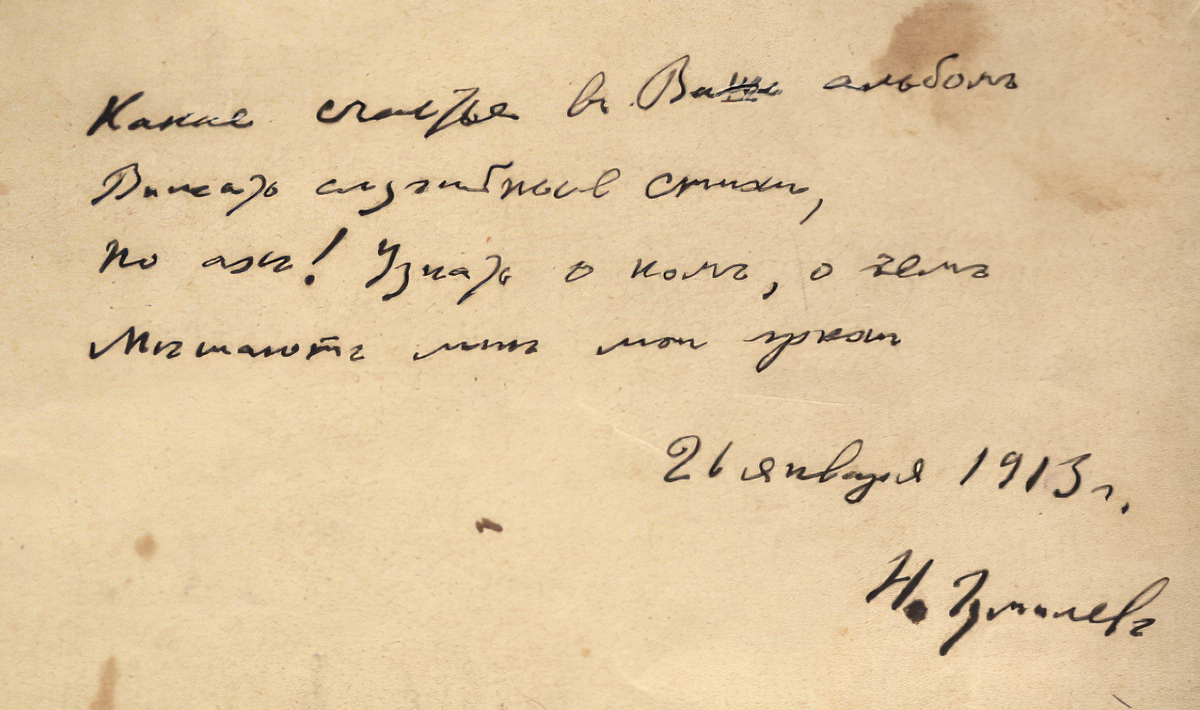 Какое счастье въ Ваш альбомъ
Вписать стихи,
Но ахъ! Узнать о комъ, о чемъ
Мѣшаютъ мнѣ мои грѣхи
26 января 1913 г.
Н. Гумилевъ